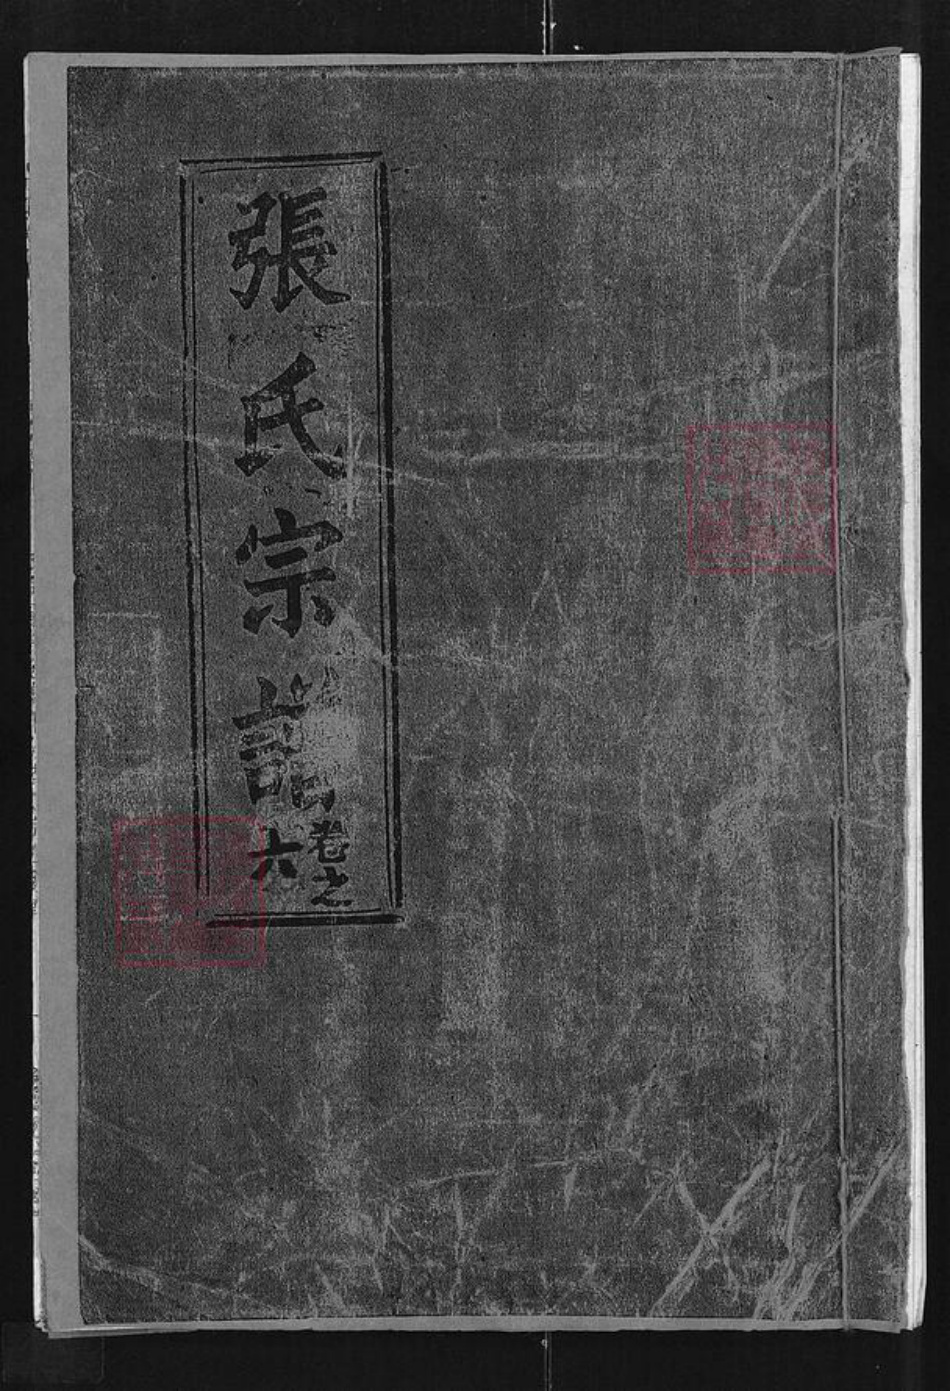 張氏宗譜
卷之
六